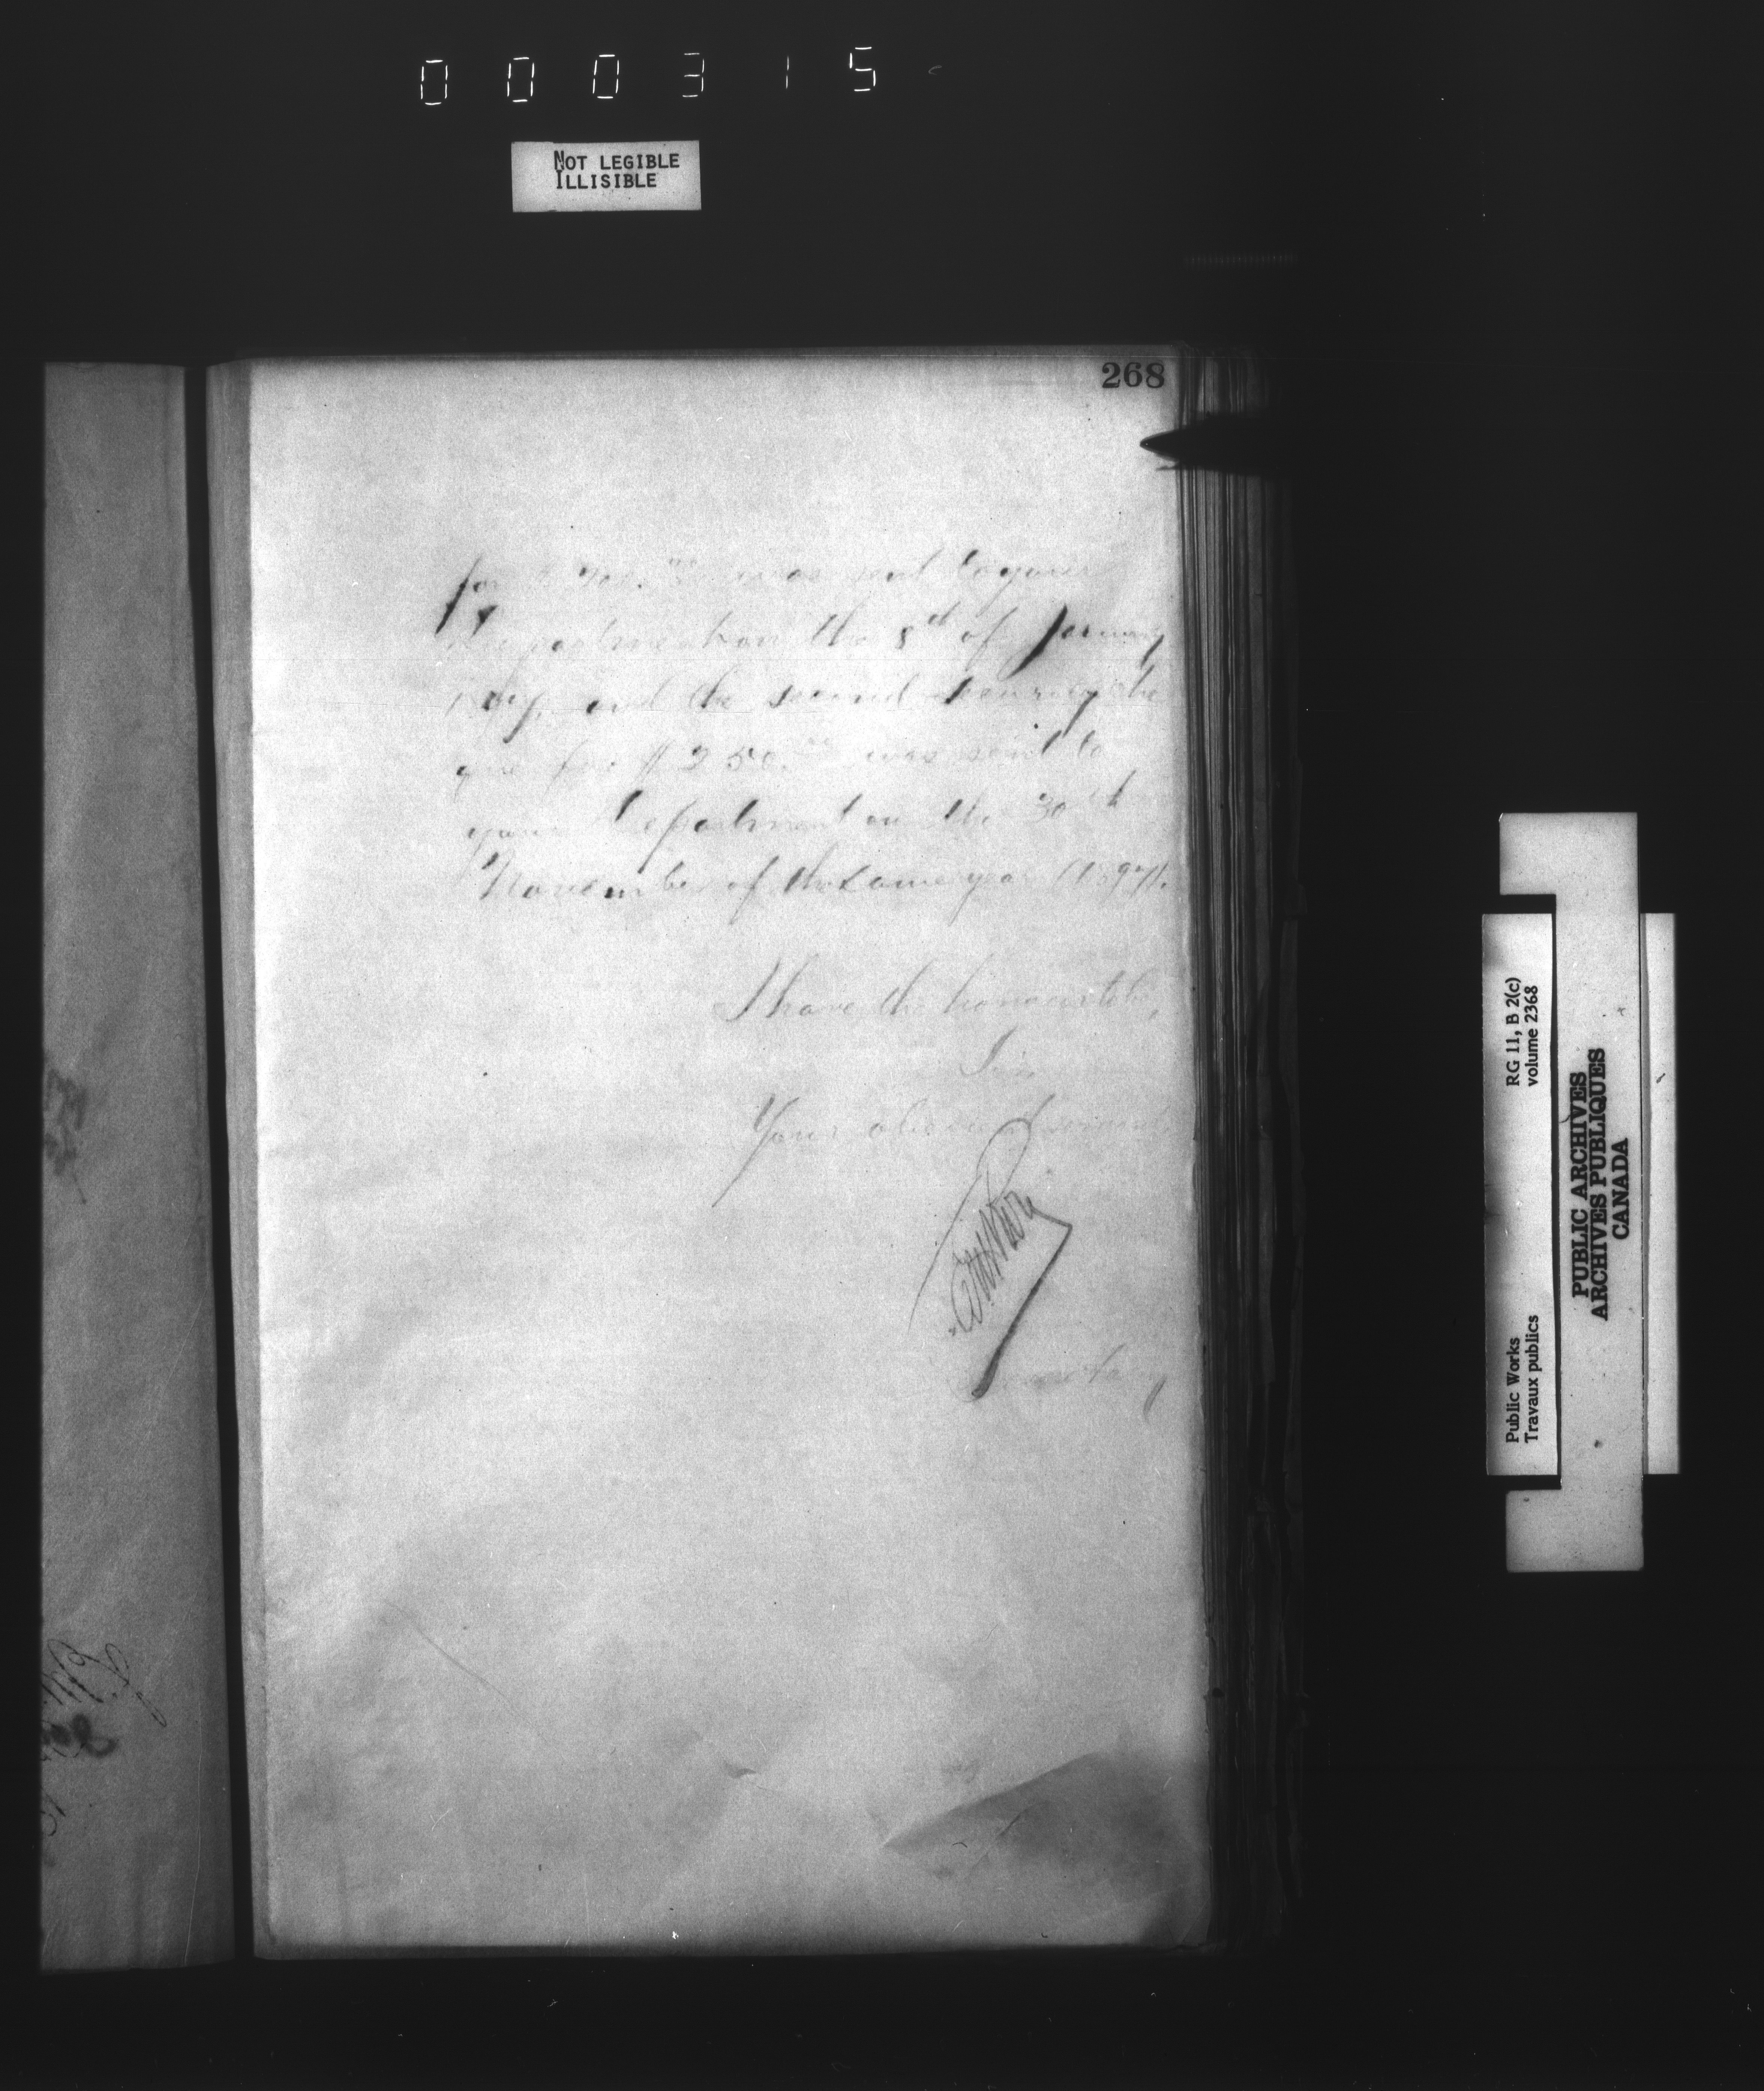 000315
NOT LEGIBLE
ILLISIBLE
268
for $ was sent to your
Department on the 8th of January
1897, and the second security che
que for $250.00 was sent to
your Department on the 30th
November of the same year (1897).
I have the honour to be,
Sir,
Your obedient servant,
Secretary
Public Works
Travaux publics
RG 11, B 2(c)
volume 2368
PUBLIC ARCHIVES
ARCHIVES PUBLIQUES
CANADA